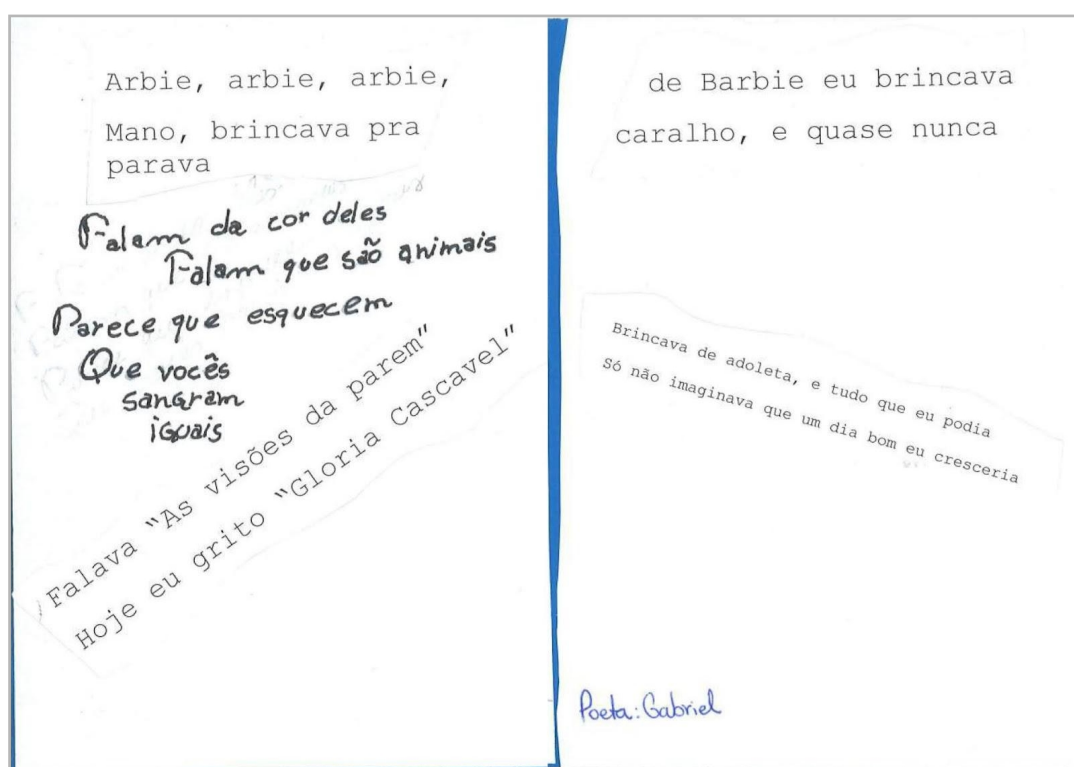 Arbie, arbie, arbie,
Mano, brincava pra
parava
Falam da cor deles
Falam que são animais
Parece que esquecem
Que vocês
sangram
iguais
Falava “As visões da parem"
Hoje eu grito “Gloria Cascavel"
de Barbie eu brincava
caralho, e quase nunca
Brincava de adoleta, e tudo que eu podia
Só não imaginava que um dia bom eu cresceria
Poeta: Gabriel